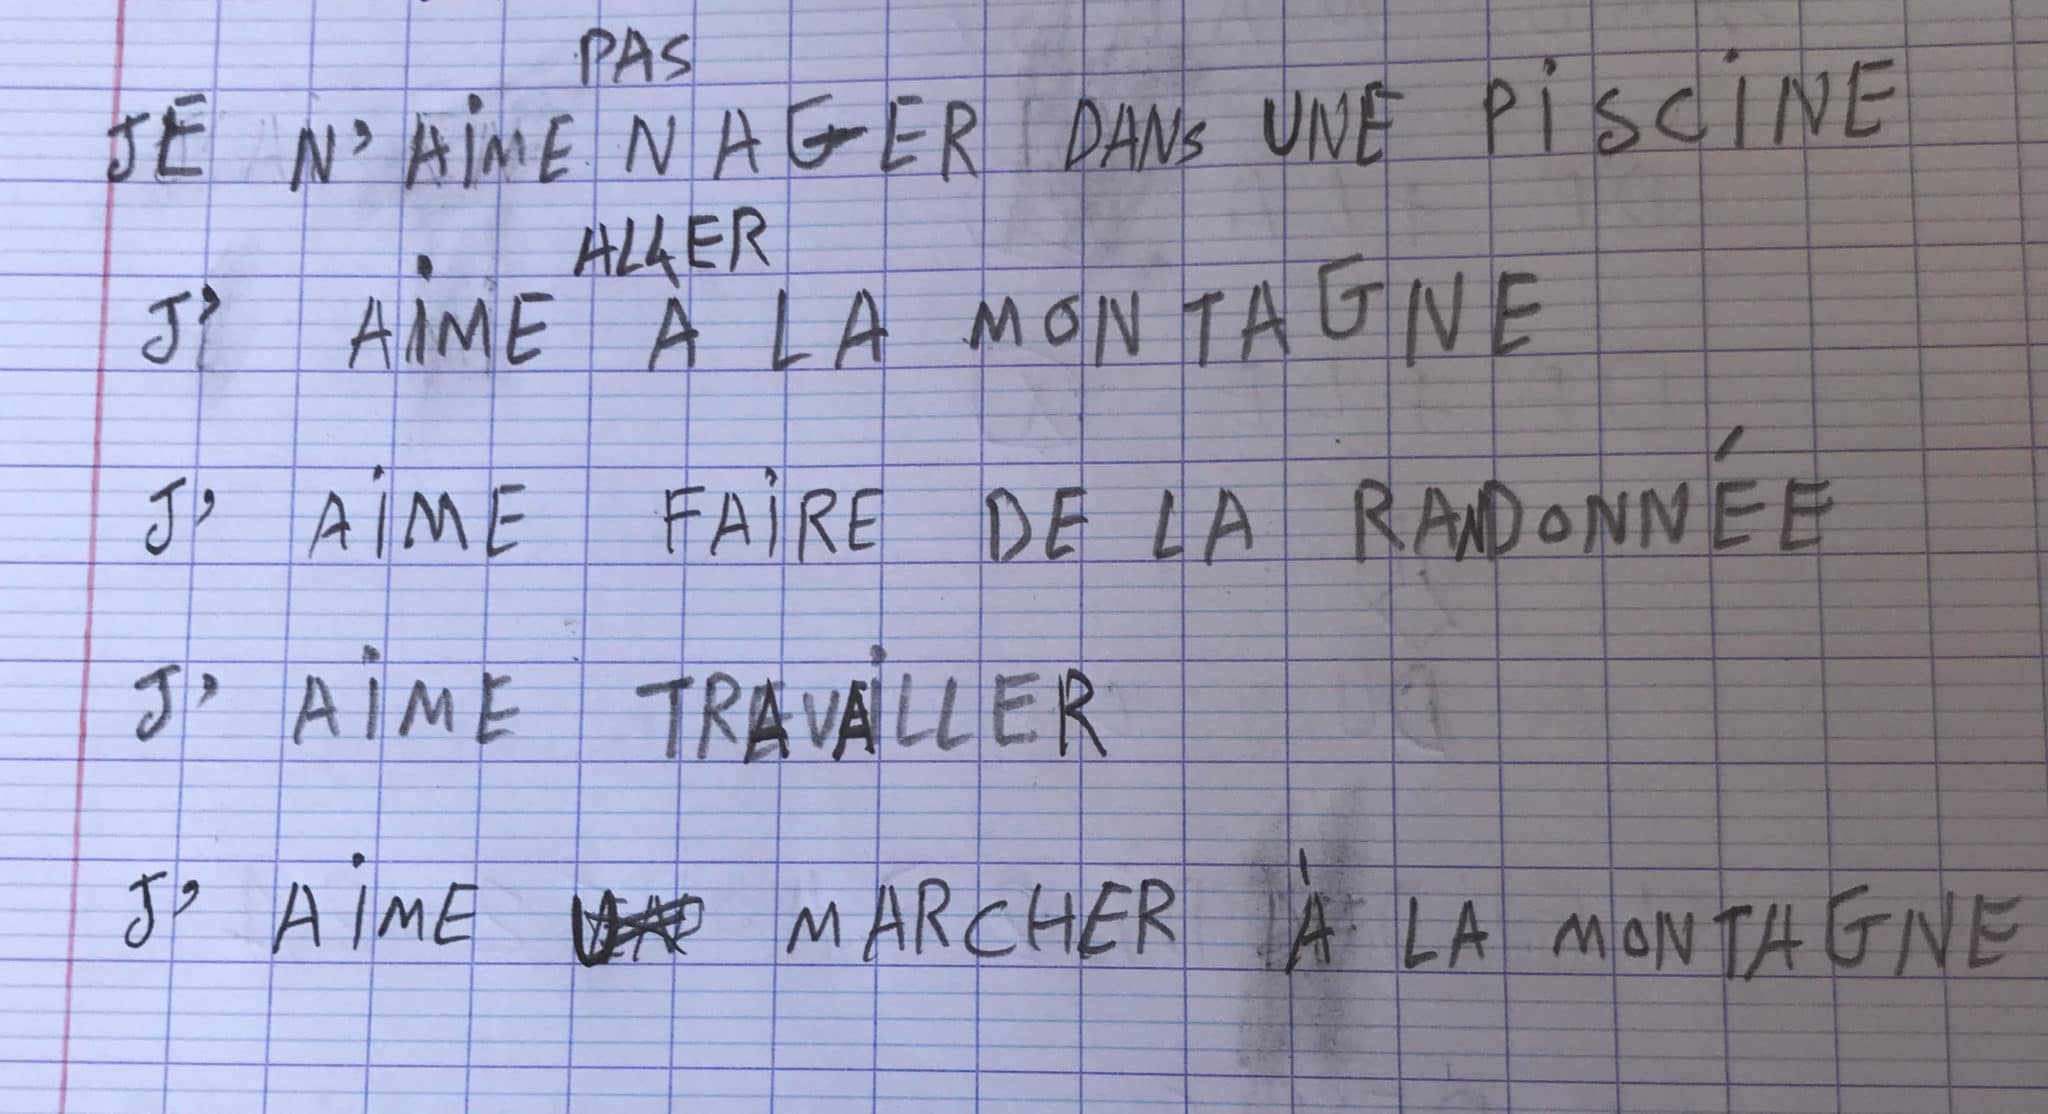 PAS
JE N'AIME NAGER DANS UNE PISCINE
ALLER
J'AIME À LA MONTAGNE
J'AIME FAIRE DE LA RANDONNÉE
J'AIME TRAVAILLER
J'AIME MARCHER À LA MONTAGNE